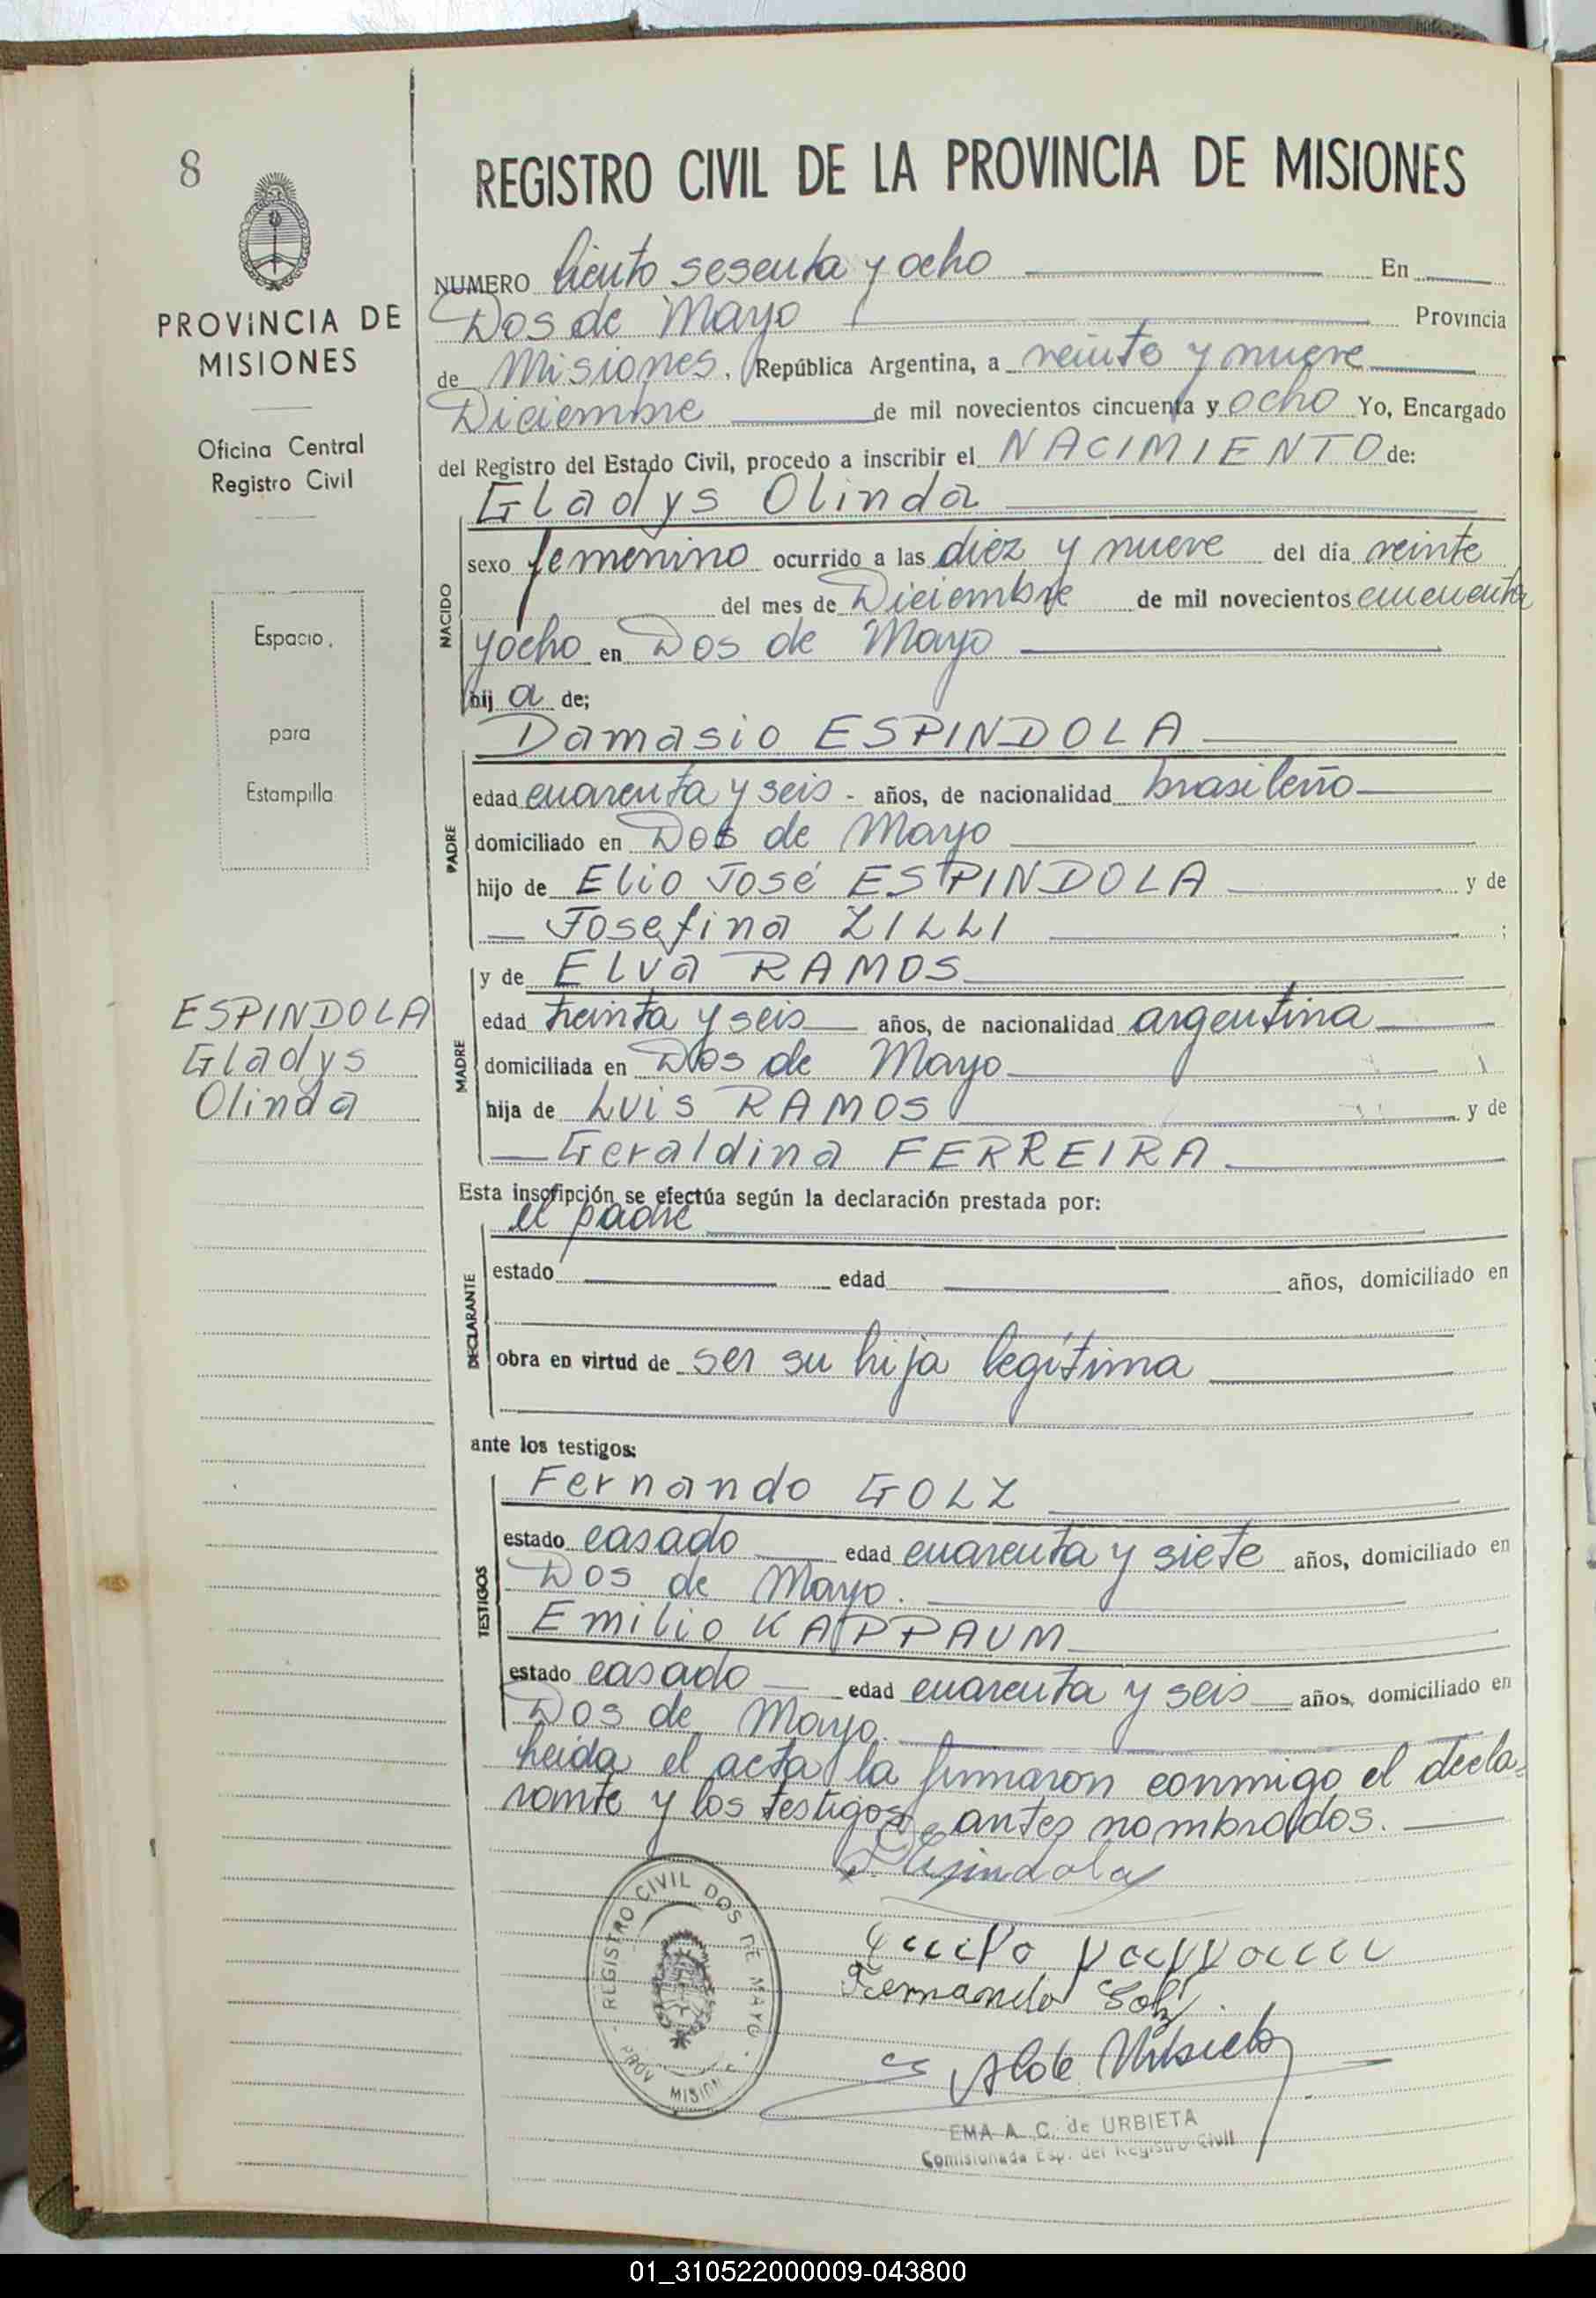 8
PROVINCIA DE
MISIONES
Oficina Central
Registro Civil
Espacio
para
Estampilla
ESPINDOLA
Gladys
Olinda
REGISTRO CIVIL DE LA PROVINCIA DE MISIONES
NUMERO Ciento sesenta y ocho En
Dos de Mayo Provincia
de Misiones, República Argentina, a veinte y nueve
Diciembre de mil novecientos cincuenta y ocho Yo, Encargado
del Registro del Estado Civil, procedo a inscribir el NACIMIENTO de:
Gladys Olinda
NACIDO
sexo femenino ocurrido a las diez y nueve del día veinte
del mes de Diciembre de mil novecientos cincuenta
y ocho en Dos de Mayo
hij a de;
Damasio ESPINDOLA
PADRE
edad cuarenta y seis - años, de nacionalidad brasileño
domiciliado en Dos de Mayo
hijo de Elio José ESPINDOLA y de
Josefina ZILLI ;
y de Elva RAMOS
MADRE
edad treinta y seis años, de nacionalidad argentina
domiciliada en Dos de Mayo
hija de Luis RAMOS y de
Geraldina FERREIRA
Esta inscripción se efectúa según la declaración prestada por:
el padre
DECLARANTE
estado edad años, domiciliado en
obra en virtud de ser su hija legítima
ante los testigos:
Fernando GOLZ
TESTIGOS
estado casado edad cuarenta y siete años, domiciliado en
Dos de Mayo.
Emilio KAPPAUM
estado casado edad cuarenta y seis años, domiciliado en
Dos de Mayo.
Leida el acta la firmaron conmigo el decla-
rante y los testigos antes nombrados.
D. Espindola
REGISTRO CIVIL DOS DE MAYO
PROV. MISIONES
Emilio Kappaum
Fernando Golz
A C de Urbieta
EMA A. C. de URBIETA
Comisionada Esp. del Registro Civil
01_310522000009-043800